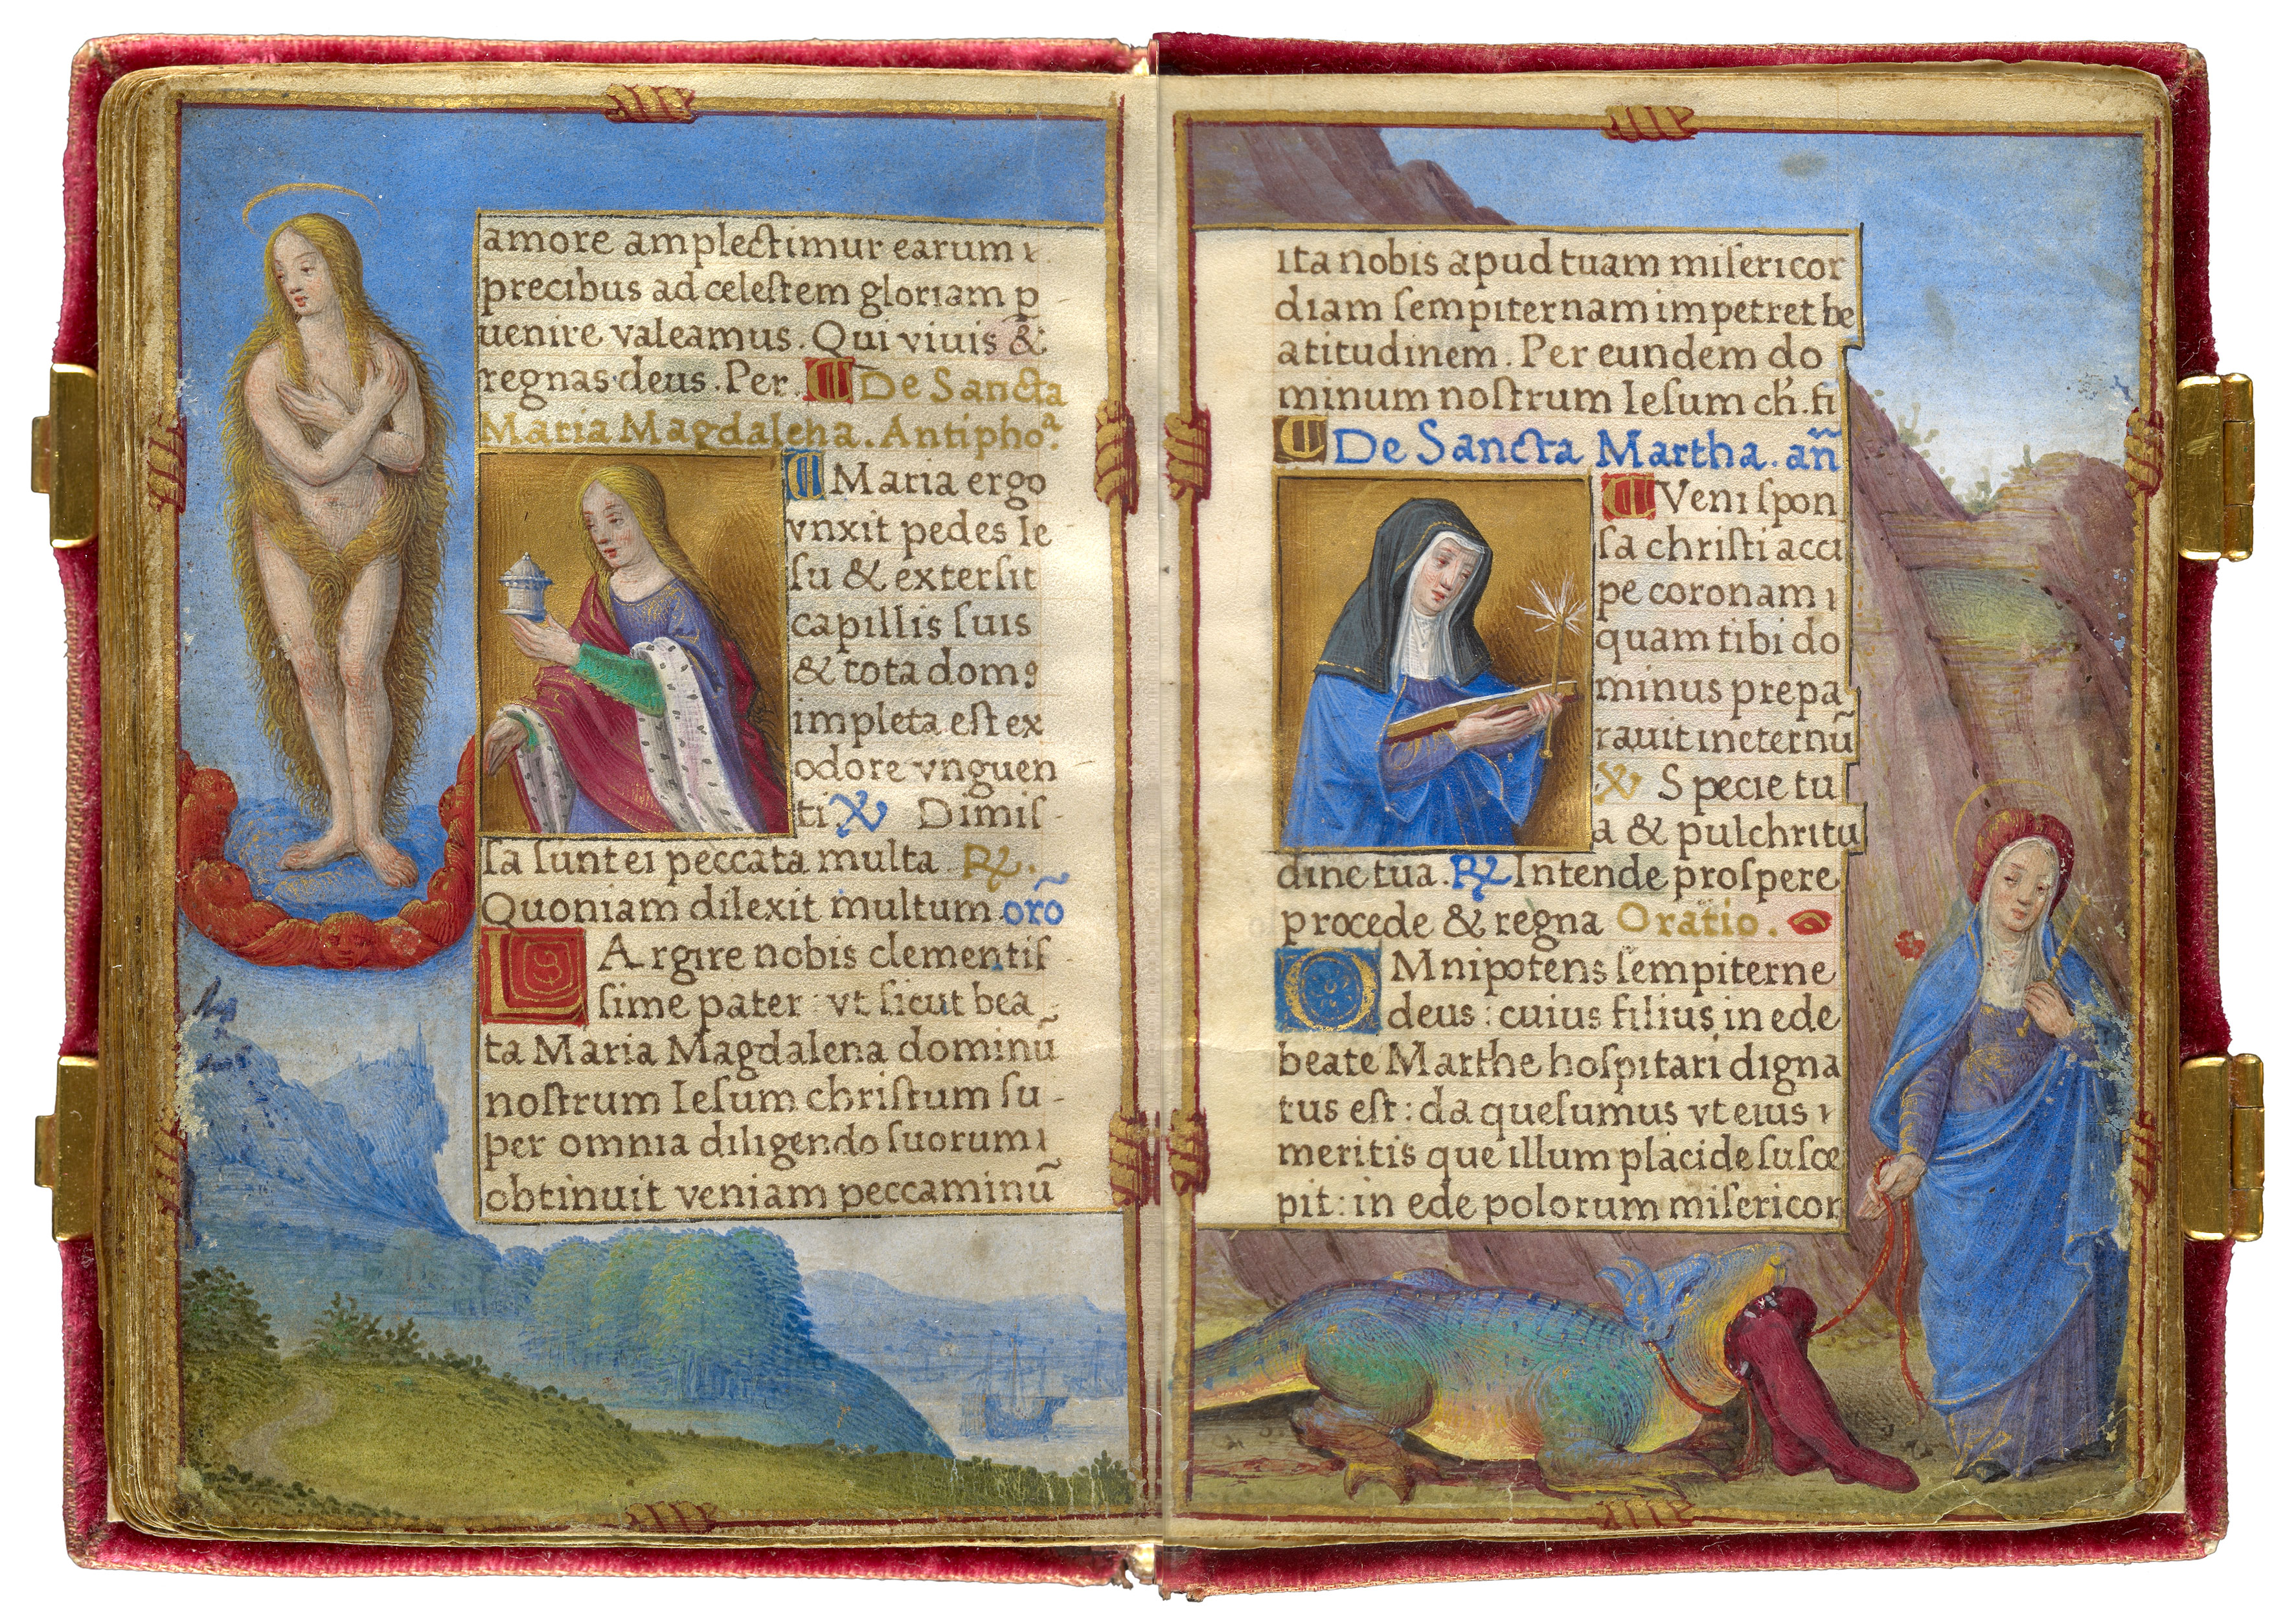 amore amplectimur earum ı
precibus ad celeſtem gloriam p̲
uenire valeamus. Qui viuis &
regnas deus. Per. De Sancta
Maria Magdalena. Antiphoᵃ.
Maria ergo
vnxit pedes Ie
ſu & exterſit
capillis ſuis
& tota domꝯ
impleta eſt ex
odore vnguen
ti ℣ Dimiſ-
ſa ſunt ei peccata multa ℟.
Quoniam dilexit multum orõ
LArgire nobis clementiſ-
ſime pater: vt ſicut bea-
ta Maria Magdalena dominũ
noſtrum Ieſum chriſtum ſu-
per omnia diligendo ſuorum ı
obtinuit veniam peccaminũ
ita nobis apud tuam miſericor
diam ſempiternam impetret be
atitudinem. Per eundem do
minum noſtrum Ieſum ch̄r. fi
De Sancta Martha. añ
Veni ſpon
ſa chriſti acci
pe coronam ı
quam tibi do
minus prepa
rauit in eternũ
℣ Specie tu
a & pulchritu
dine tua. ℟ Intende proſpere
procede & regna Oratio.
OMnipotens ſempiterne
deus: cuius filius in ede
beate Marthe hoſpitari digna
tus eſt: da queſumus vt eius ı
meritis que illum placide ſuſce
pit: in ede polorum miſericor